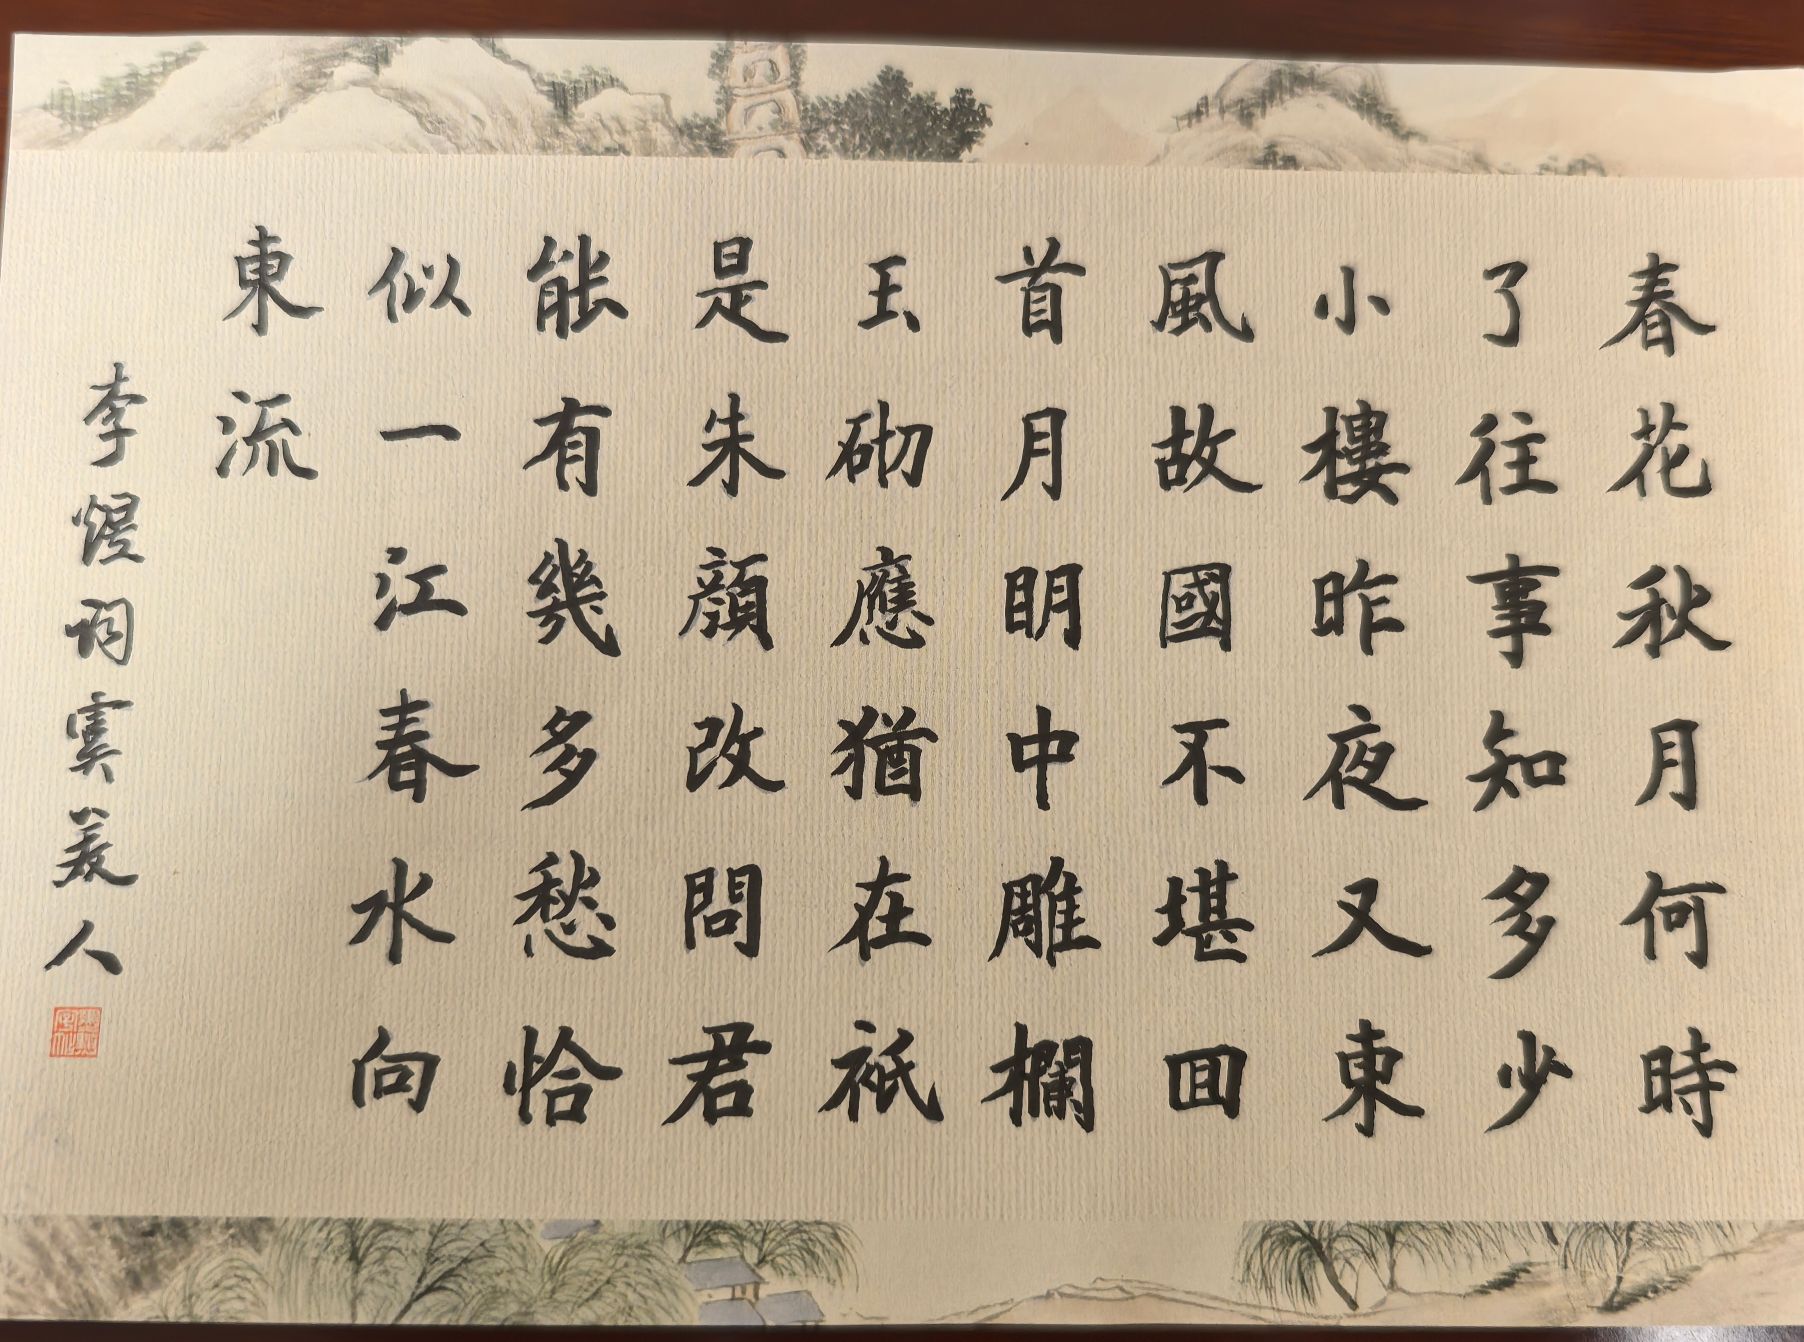 春花秋月何時
了往事知多少
小樓昨夜又東
風故國不堪回
首月明中雕欄
玉砌應猶在祇
是朱顏改問君
能有幾多愁恰
似一江春水向
東流
李煜詞虞美人